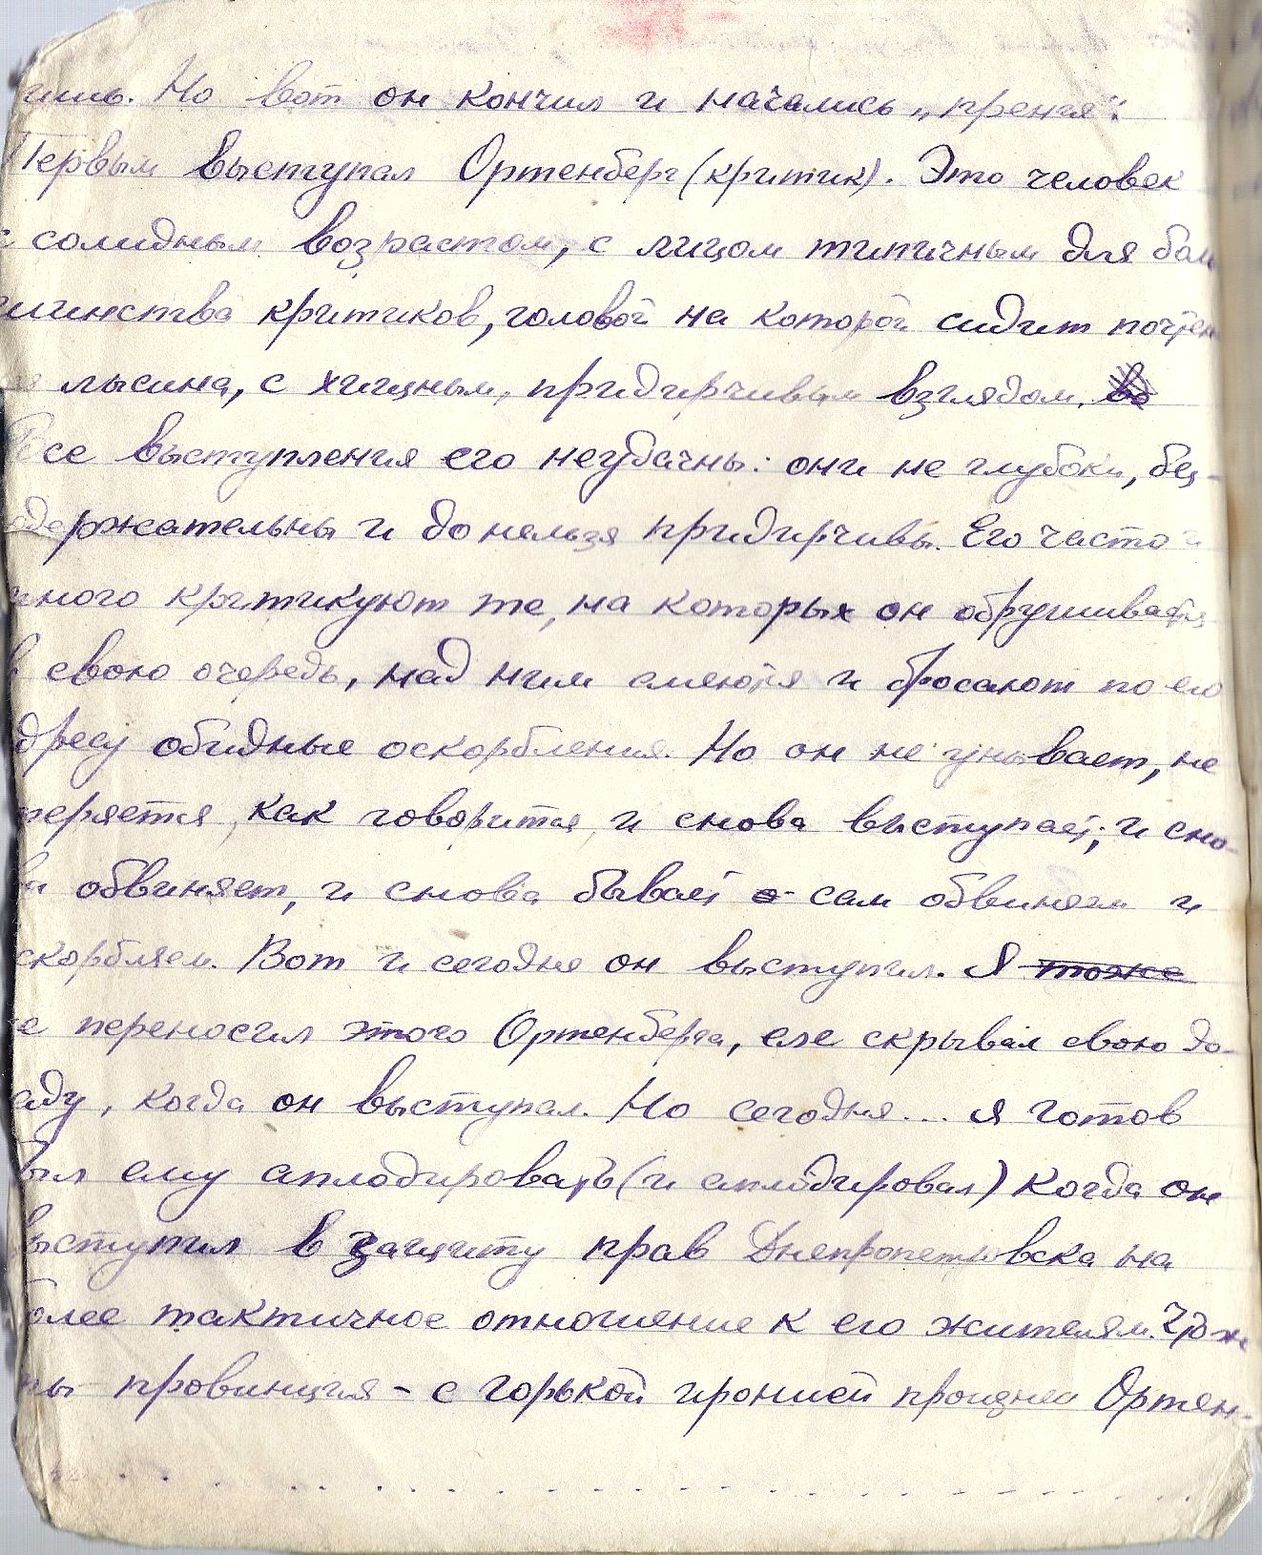 ишь. Но вот он кончил и начались „прения“.
Первым выступал Ортенберг (критик). Это человек
с солидным возрастом, с лицом типичным для боль
шинства критиков, головой на которой сидит почтен
лысина, с хищным, придирчивым взглядом.
Все выступления его неудачны: они не глубоки, без-
содержательны и до нельзя придирчивы. Его часто и
много критикуют те, на которых он обрушивается
в свою очередь, над ним смеются и бросают по его
дресу обидные оскорбления. Но он не унывает, не
теряется, как говорится, и снова выступает; и сно-
ва обвиняет, и снова бывает сам обвиняем и
скорбляем. Вот и сегодня он выступил. Я тоже
не переносил этого Ортенберга, еле скрывал свою до-
саду, когда он выступал. Но сегодня... я готов
был ему аплодировать (и аплодировал) когда он
выступил в защиту прав Днепропетровска на
более тактичное отношение к его жителям.
мы – провинция – с горькой иронией произнес Ортен-